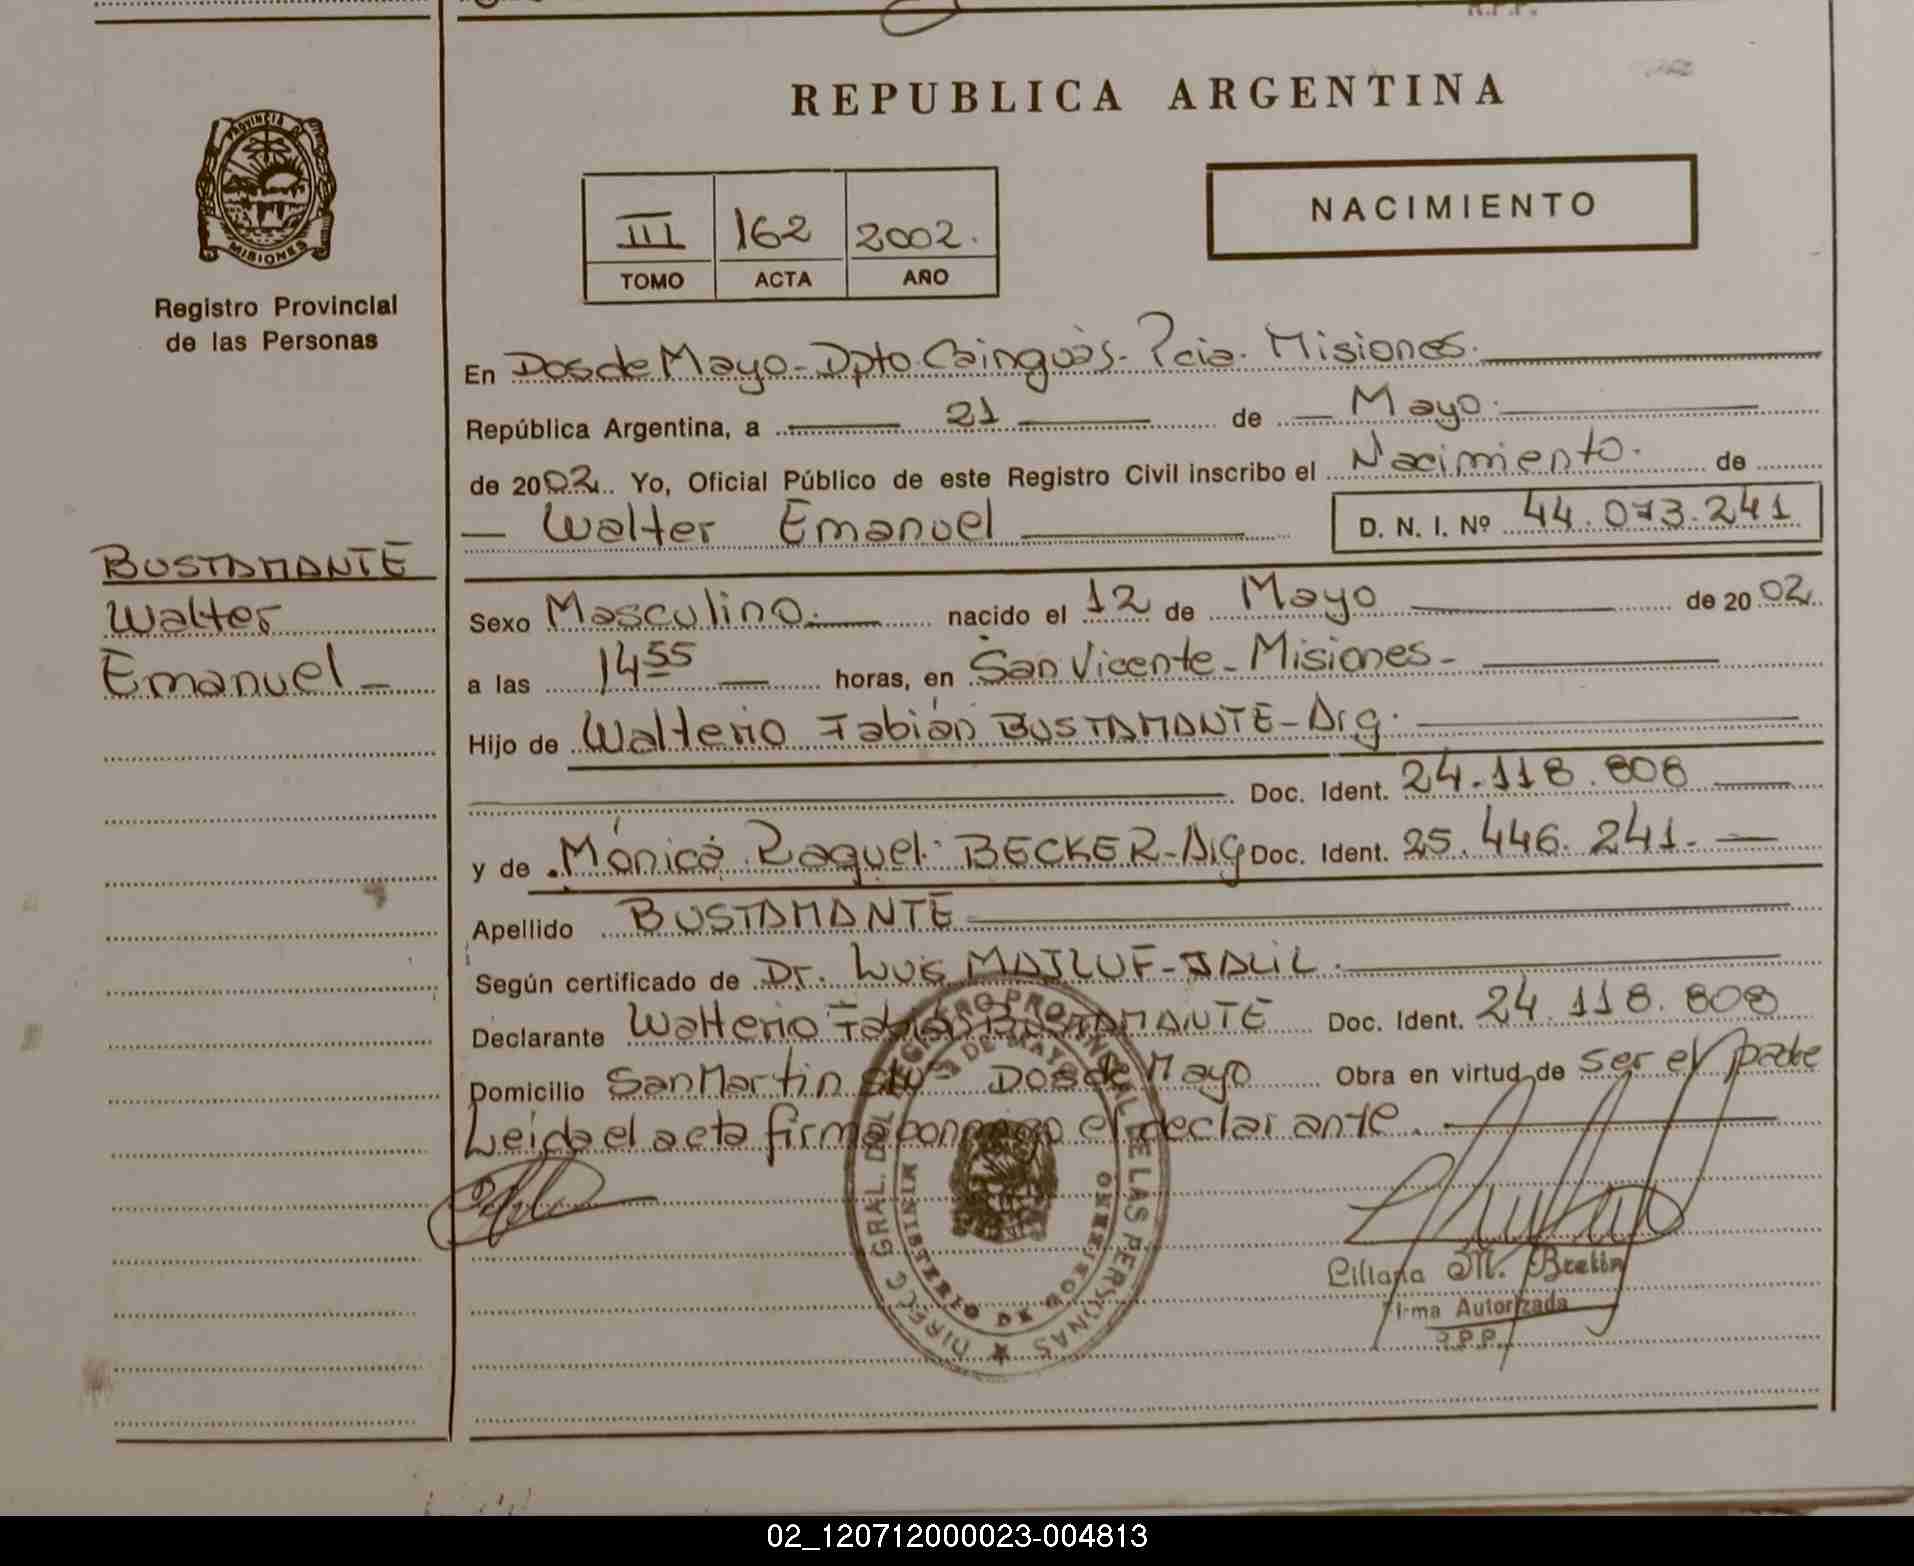 R.P.P.
REPUBLICA ARGENTINA
PROVINCIA DE
MISIONES
Registro Provincial
de las Personas
III 162 2002.
TOMO ACTA AÑO
NACIMIENTO
En Dos de Mayo - Dpto. Cainguás - Pcia. Misiones.
República Argentina, a 21 de Mayo.
de 2002. Yo, Oficial Público de este Registro Civil inscribo el Nacimiento. de
Walter Emanuel D. N. I. Nº 44.073.241
BUSTAMANTE
Walter
Emanuel -
Sexo Masculino. nacido el 12 de Mayo de 2002.
a las 14 55 horas, en San Vicente - Misiones -
Hijo de Walterio Fabián BUSTAMANTE - Arg.
Doc. Ident. 24.118.808
y de Mónica Raquel BECKER - Arg Doc. Ident. 25.446.241.
Apellido BUSTAMANTE
Según certificado de Dr. Luis MAJLUF - JALIL.
Declarante Walterio Fabián BUSTAMANTE Doc. Ident. 24.118.808
Domicilio San Martin S/Nº Dos de Mayo Obra en virtud de ser el padre
Leída el acta firma conmigo el declarante.
DIRECC. GRAL. DEL REGISTRO PROVINCIAL DE LAS PERSONAS
DOS DE MAYO
MINISTERIO DE GOBIERNO
Liliana M. Brelin
Firma Autorizada
R.P.P.
02_120712000023-004813